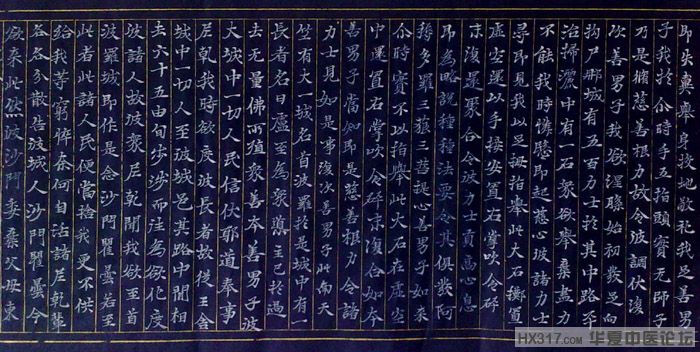 即失糞舉身投地敬礼我足善男
子我於尒時手五指頭實無師子
乃是脩慈善根力故令彼調伏復
次善男子我欲涅槃始初發足向
拘尸那城有五百力士於其中路平
治掃灑中有一石衆欲舉棄盡力
不能我時憐愍即起慈心彼諸力士
尋即見我以足拇指舉此大石擲置
虛空還以手接安置右掌吹令碎
末復還聚合令彼力士貢高心息
即為略說種種法要令其俱發阿
耨多羅三藐三菩提心善男子如来
尒時實不以指舉此大石在虛空
中還置右掌吹令碎末復合如本
善男子當知即是慈善根力令諸
力士見如是事復次善男子此南天
竺有一大城名首波羅於是城中有一
長者名曰盧至為衆導主已於過
去无量佛所殖衆善本善男子彼
大城中一切人民信伏耶道奉事
尼乾我時欲度彼長者故從王舍
城中一切人至彼城邑其路中間相
去六十五由旬步涉而往為欲化度
彼諸人故彼衆尼乾聞我欲至首
波羅城即作是念沙門瞿曇若至
此者此諸人民便當捨我更不供
給我等窮悴奈何自活諸尼乾輩
各各分散告彼城人沙門瞿曇今
欲来此然彼沙門委棄父母東
HX317.com 华夏中医论坛